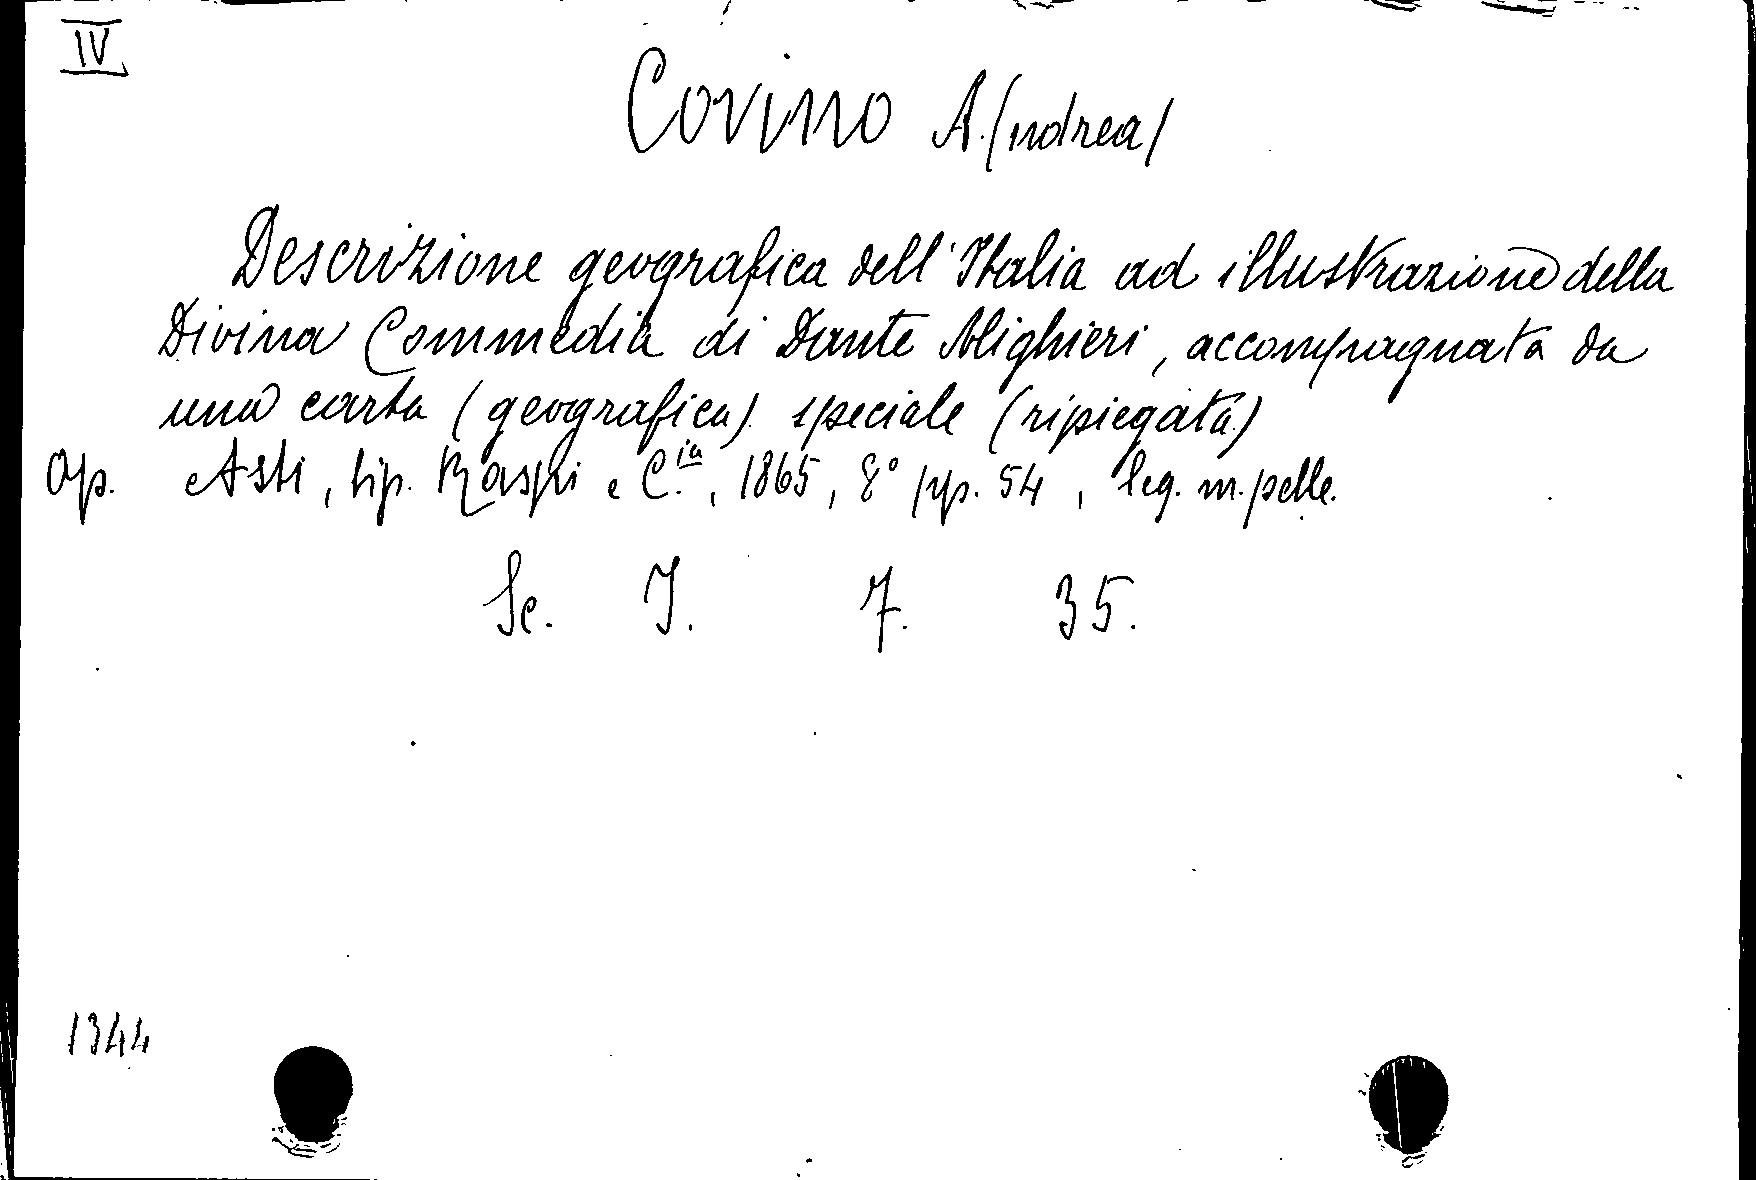 IV
Covino A.(ndrea)
Descrizione geografica dell'Italia ad illustrazione della
Divina Commedia di Dante Alighieri, accompagnata da
una carta (geografica) speciale (ripiegata)
Op. Asti, tip. Raspi e C.ia, 1865, 8° pp. 54, leg. m. pelle.
Sc. I. 7. 35.
1344